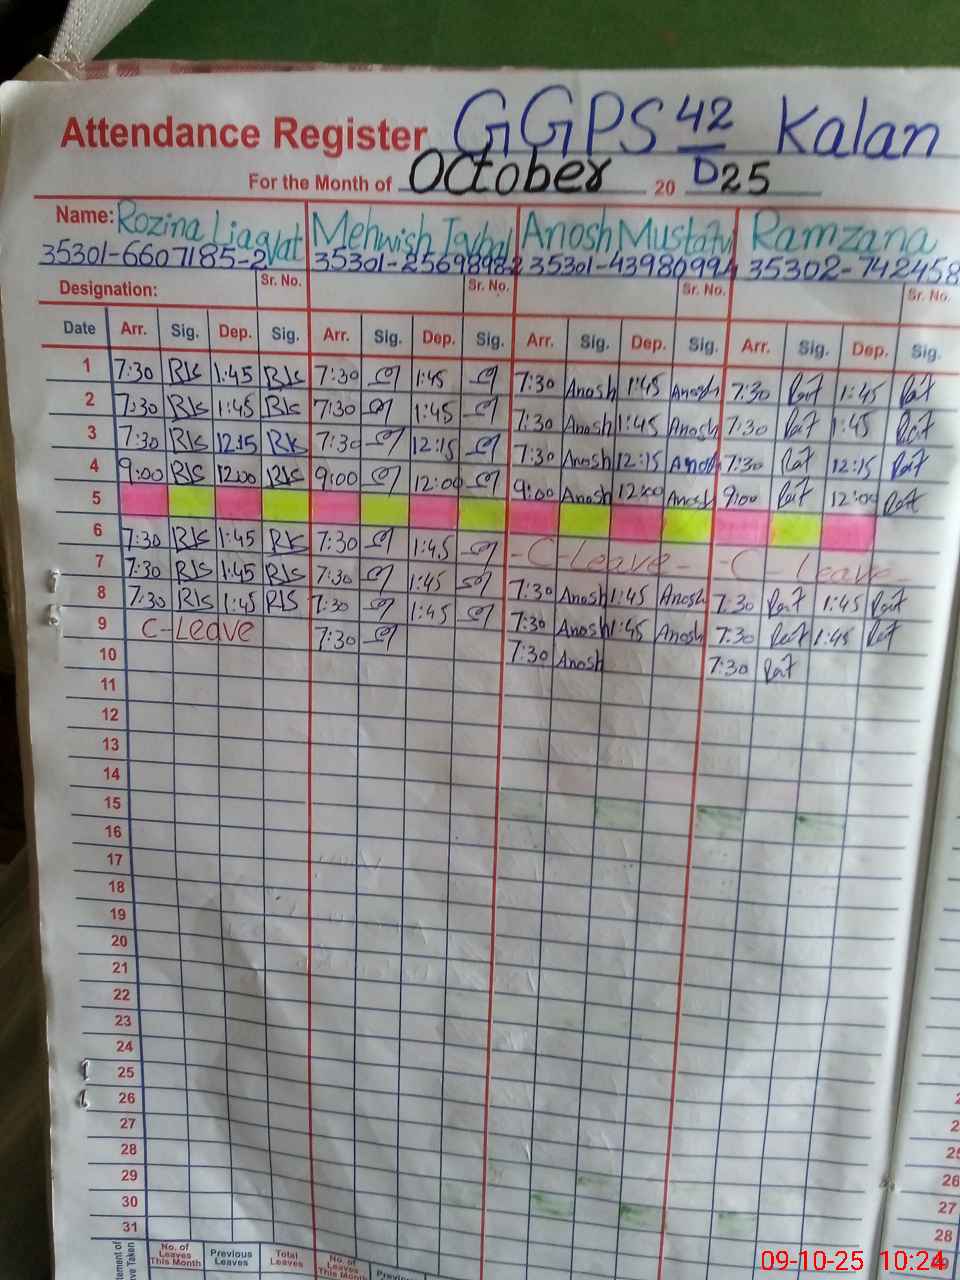 Attendance Register GGPS 42/D Kalan
For the Month of October 20 25
Name: Rozina Liaqat Mehwish Iqbal Anosh Mustafa Ramzana
35301-6607185-2 35301-2569898-2 35301-43980994 35302-742458
Sr. No. Sr. No. Sr. No. Sr. No.
Designation:
Date Arr. Sig. Dep. Sig. Arr. Sig. Dep. Sig. Arr. Sig. Dep. Sig. Arr. Sig. Dep. Sig.
1 7:30 RLS 1:45 RLS 7:30 1:45 7:30 Anosh 1:45 Anosh 7:30 1:45
2 7:30 RLS 1:45 RLS 7:30 1:45 7:30 Anosh 1:45 Anosh 7:30 1:45
3 7:30 RLS 12:15 RLS 7:30 12:15 7:30 Anosh 12:15 Anosh 7:30 12:15
4 9:00 RLS 12:00 RLS 9:00 12:00 9:00 Anosh 12:00 Anosh 9:00 12:00
5
6 7:30 RLS 1:45 RLS 7:30 1:45 -C-Leave- -C-Leave-
7 7:30 RLS 1:45 RLS 7:30 1:45 7:30 Anosh 1:45 Anosh 7:30 1:45
8 7:30 RLS 1:45 RLS 7:30 1:45 7:30 Anosh 1:45 Anosh 7:30 1:45
9 C-Leave 7:30 7:30 Anosh 7:30
10
11
12
13
14
15
16
17
18
19
20
21
22
23
24
25
26
27
28
29
30
31
No. of Leaves This Month Previous Leaves Total Leaves No. of Leaves This Month
26
27
28
09-10-25 10:24